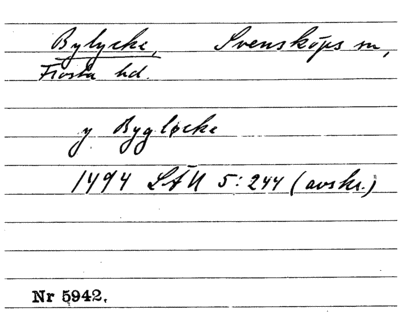 Bylycke, Svensköps sn,
Frosta hd.
y Bygløcke
1494 LÄU 5:244 (avskr.)
Nr 5942.